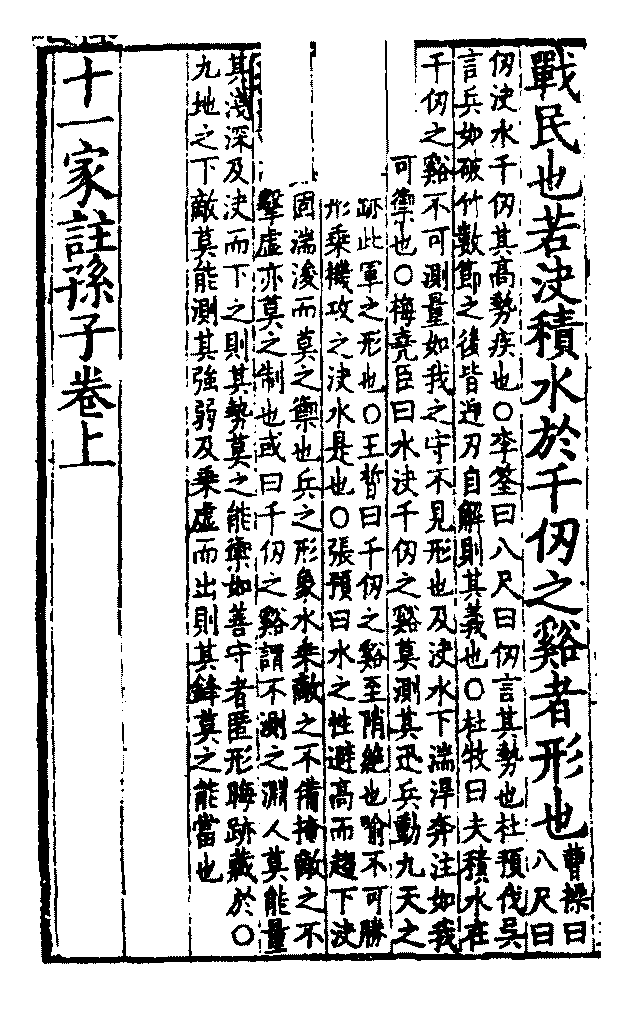 戰民也若決積水於千仞之谿者形也曹操曰
八尺曰
仞決水千仞其高勢疾也○李筌曰八尺曰仞言其勢也杜預伐吳
言兵如破竹數節之後皆迎刃自解則其義也○杜牧曰夫積水在
千仞之谿不可測量如我之守不見形也及決水下湍悍奔注如我
可禦也○梅堯臣曰水決千仞之谿莫測其迅兵動九天之
跡此軍之形也○王晳曰千仞之谿至陗絶也喻不可勝
形乘機攻之決水是也○張預曰水之性避高而趨下決
固湍浚而莫之禦也兵之形象水乘敵之不備掩敵之不
擊虛亦莫之制也或曰千仞之谿謂不測之淵人莫能量
其淺深及決而下之則其勢莫之能禦如善守者匿形晦跡藏於○
九地之下敵莫能測其強弱及乘虛而出則其鋒莫之能當也
十一家註孫子卷上